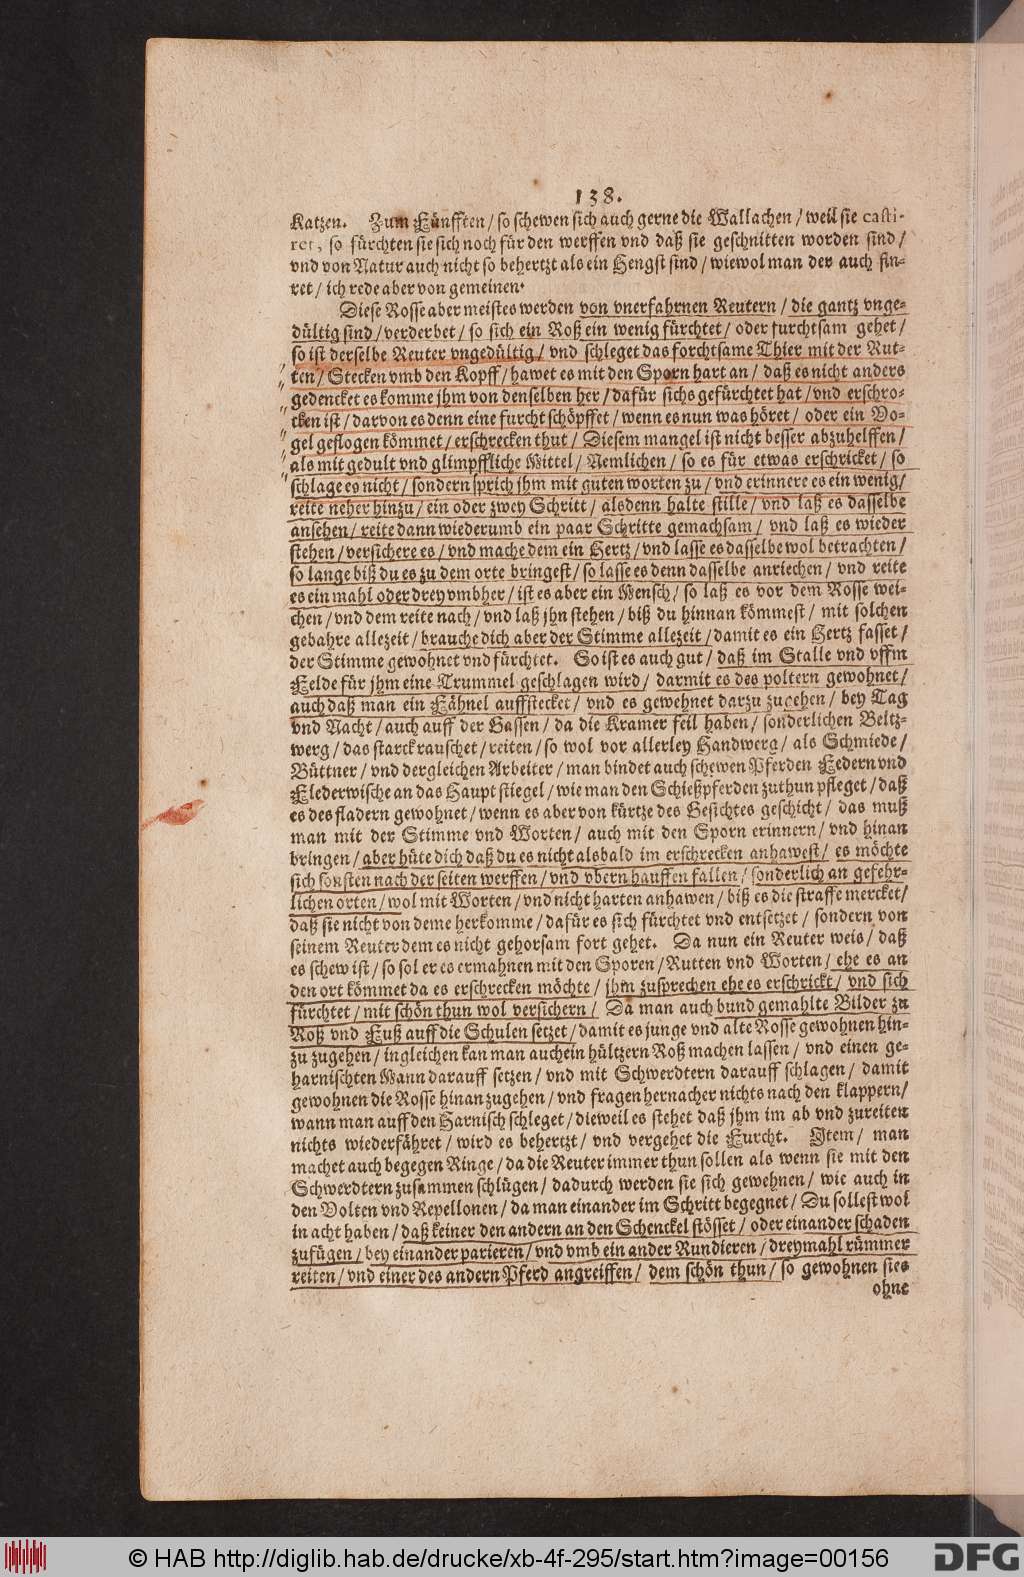 138.
Katzen. Zum Fünfften / so schewen sich auch gerne die Wallachen / weil sie casti-
ret, so fürchten sie sich noch für den werffen vnd daß sie geschnitten worden sind /
vnd von Natur auch nicht so behertzt als ein Hengst sind / wiewol man der auch fin-
ret / ich rede aber von gemeinen.
Diese Rosse aber meistes werden von vnerfahrnen Reutern / die gantz vnge-
dültig sind / verderbet / so sich ein Roß ein wenig fürchtet / oder furchtsam gehet /
so ist derselbe Reuter vngedültig / vnd schleget das forchtsame Thier mit der Rut-
ten / Stecken vmb den Kopff / hawet es mit den Sporn hart an / daß es nicht anders
gedencket es komme jhm von denselben her / dafür sichs gefürchtet hat / vnd erschro-
cken ist / darvon es denn eine furcht schöpffet / wenn es nun was höret / oder ein Vo-
gel geflogen kömmet / erschrecken thut / Diesem mangel ist nicht besser abzuhelffen /
als mit gedult vnd glimpffliche Mittel / Nemlichen / so es für etwas erschricket / so
schlage es nicht / sondern sprich jhm mit guten worten zu / vnd erinnere es ein wenig /
reite neher hinzu / ein oder zwey Schritt / alsdenn halte stille / vnd laß es dasselbe
ansehen / reite dann wiederumb ein paar Schritte gemachsam / vnd laß es wieder
stehen / versichere es / vnd mache dem ein Hertz / vnd lasse es dasselbe wol betrachten /
so lange biß du es zu dem orte bringest / so lasse es denn dasselbe anriechen / vnd reite
es ein mahl oder drey vmbher / ist es aber ein Mensch / so laß es vor dem Rosse wei-
chen / vnd dem reite nach / vnd laß jhn stehen / biß du hinnan kömmest / mit solchen
gebahre allezeit / brauche dich aber der Stimme allezeit / damit es ein Hertz fasset /
der Stimme gewohnet vnd fürchtet. So ist es auch gut / daß im Stalle vnd vffm
Felde für jhm eine Trummel geschlagen wird / darmit es des poltern gewohnet /
auch daß man ein Fähnel auffstecket / vnd es gewehnet darzu zugehen / bey Tag
vnd Nacht / auch auff der Gassen / da die Kramer feil haben / sonderlichen Beltz-
werg / das starck rauschet / reiten / so wol vor allerley Handwerg / als Schmiede /
Büttner / vnd dergleichen Arbeiter / man bindet auch schewen Pferden Federn vnd
Flederwische an das Haupt stiegel / wie man den Schießpferden zuthun pfleget / daß
es des fladern gewohnet / wenn es aber von kürtze des Gesichtes geschicht / das muß
man mit der Stimme vnd Worten / auch mit den Sporn erinnern / vnd hinan
bringen / aber hüte dich daß du es nicht alsbald im erschrecken anhawest / es möchte
sich sonsten nach der seiten werffen / vnd vbern hauffen fallen / sonderlich an gefehr-
lichen orten / wol mit Worten / vnd nicht harten anhawen / biß es die straffe mercket /
daß sie nicht von deme herkomme / dafür es sich fürchtet vnd entsetzet / sondern von
seinem Reuter dem es nicht gehorsam fort gehet. Da nun ein Reuter weis / daß
es schew ist / so sol er es ermahnen mit den Sporen / Rutten vnd Worten / ehe es an
den ort kömmet da es erschrecken möchte / jhm zusprechen ehe es erschrickt / vnd sich
fürchtet / mit schön thun wol versichern / Da man auch bund gemahlte Bilder zu
Roß vnd Fuß auff die Schulen setzet / damit es junge vnd alte Rosse gewohnen hin-
zu zugehen / ingleichen kan man auch ein hültzern Roß machen lassen / vnd einen ge-
harnischten Mann darauff setzen / vnd mit Schwerdtern darauff schlagen / damit
gewohnen die Rosse hinan zugehen / vnd fragen hernacher nichts nach den klappern /
wann man auff den Harnisch schleget / dieweil es stehet daß jhm im ab vnd zureiten
nichts wiederfähret / wird es behertzt / vnd vergehet die Furcht. Item / man
machet auch begegen Ringe / da die Reuter immer thun sollen als wenn sie mit den
Schwerdtern zusammen schlügen / dadurch werden sie sich gewehnen / wie auch in
den Volten vnd Repellonen / da man einander im Schritt begegnet / Du sollest wol
in acht haben / daß keiner den andern an den Schenckel stösset / oder einander schaden
zufügen / bey einander parieren / vnd vmb ein ander Rundieren / dreymahl rümmer
reiten / vnd einer des andern Pferd angreiffen / dem schön thun / so gewohnen sies
ohne
© HAB http://diglib.hab.de/drucke/xb-4f-295/start.htm?image=00156
DFG